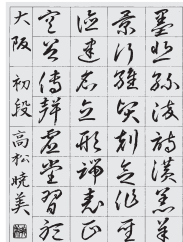 墨悲絲染詩讃羔羊
景行維賢剋念作聖
徳建名立形端表正
空谷傳聲虚堂習聴
大阪 初段 高松暁美